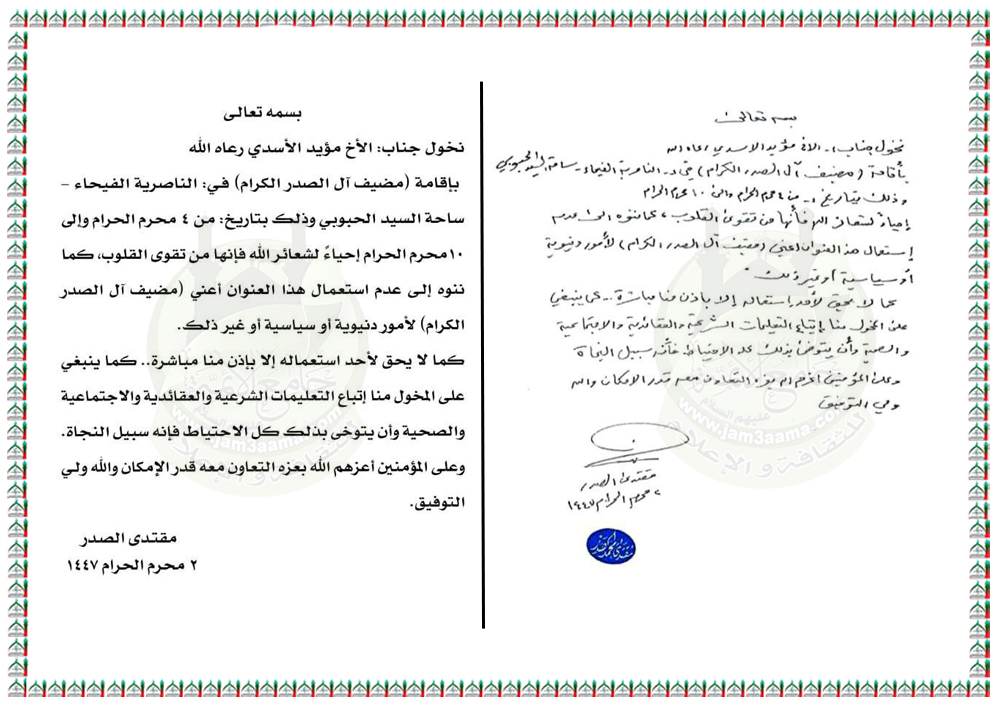 بسمه تعالى
نخول جناب :. الاخ مؤيد الاسدي رعاه الله
بأقامة (مضيف آل الصدر الكرام) في :. الناصرية الفيحاء ـ ساحة السيد الحبوبي
وذلك بتاريخ :. من ٤ محرم الحرام والى ١٠ محرم الحرام
إحياءً لشعائر الله فأنها من تقوى القلوب، كما ننوه الى عدم
إستعمال هذا العنوان أعني (مضيف آل الصدر الكرام) لأمور دنيوية
أو سياسية أو غير ذلك.
كما لا يحق لأحد إستعماله إلا بإذن منا مباشرة.. كما ينبغي
على المخول منا إتباع التعليمات الشرعية والعقائدية والاجتماعية
والصحية وأن يتوخى بذلك كل الاحتياط فأنه سبيل النجاة
وعلى المؤمنين أعزهم الله بعزه التعاون معه قدر الامكان والله
ولي التوفيق
مقتدى الصدر
٢ محرم الحرام ١٤٤٧
بسمه تعالى
نخول جناب: الأخ مؤيد الأسدي رعاه الله
بإقامة (مضيف آل الصدر الكرام) في: الناصرية الفيحاء –
ساحة السيد الحبوبي وذلك بتاريخ: من ٤ محرم الحرام وإلى
١٠محرم الحرام إحياءً لشعائر الله فإنها من تقوى القلوب، كما
ننوه إلى عدم استعمال هذا العنوان أعني (مضيف آل الصدر
الكرام) لأمور دنيوية أو سياسية أو غير ذلك.
كما لا يحق لأحد استعماله إلا بإذن منا مباشرة.. كما ينبغي
على المخول منا إتباع التعليمات الشرعية والعقائدية والاجتماعية
والصحية وأن يتوخى بذلك كل الاحتياط فإنه سبيل النجاة.
وعلى المؤمنين أعزهم الله بعزه التعاون معه قدر الإمكان والله ولي
التوفيق.
مقتدى الصدر
٢ محرم الحرام ١٤٤٧
www.jam3aama.com
للثقافة و الإعلام